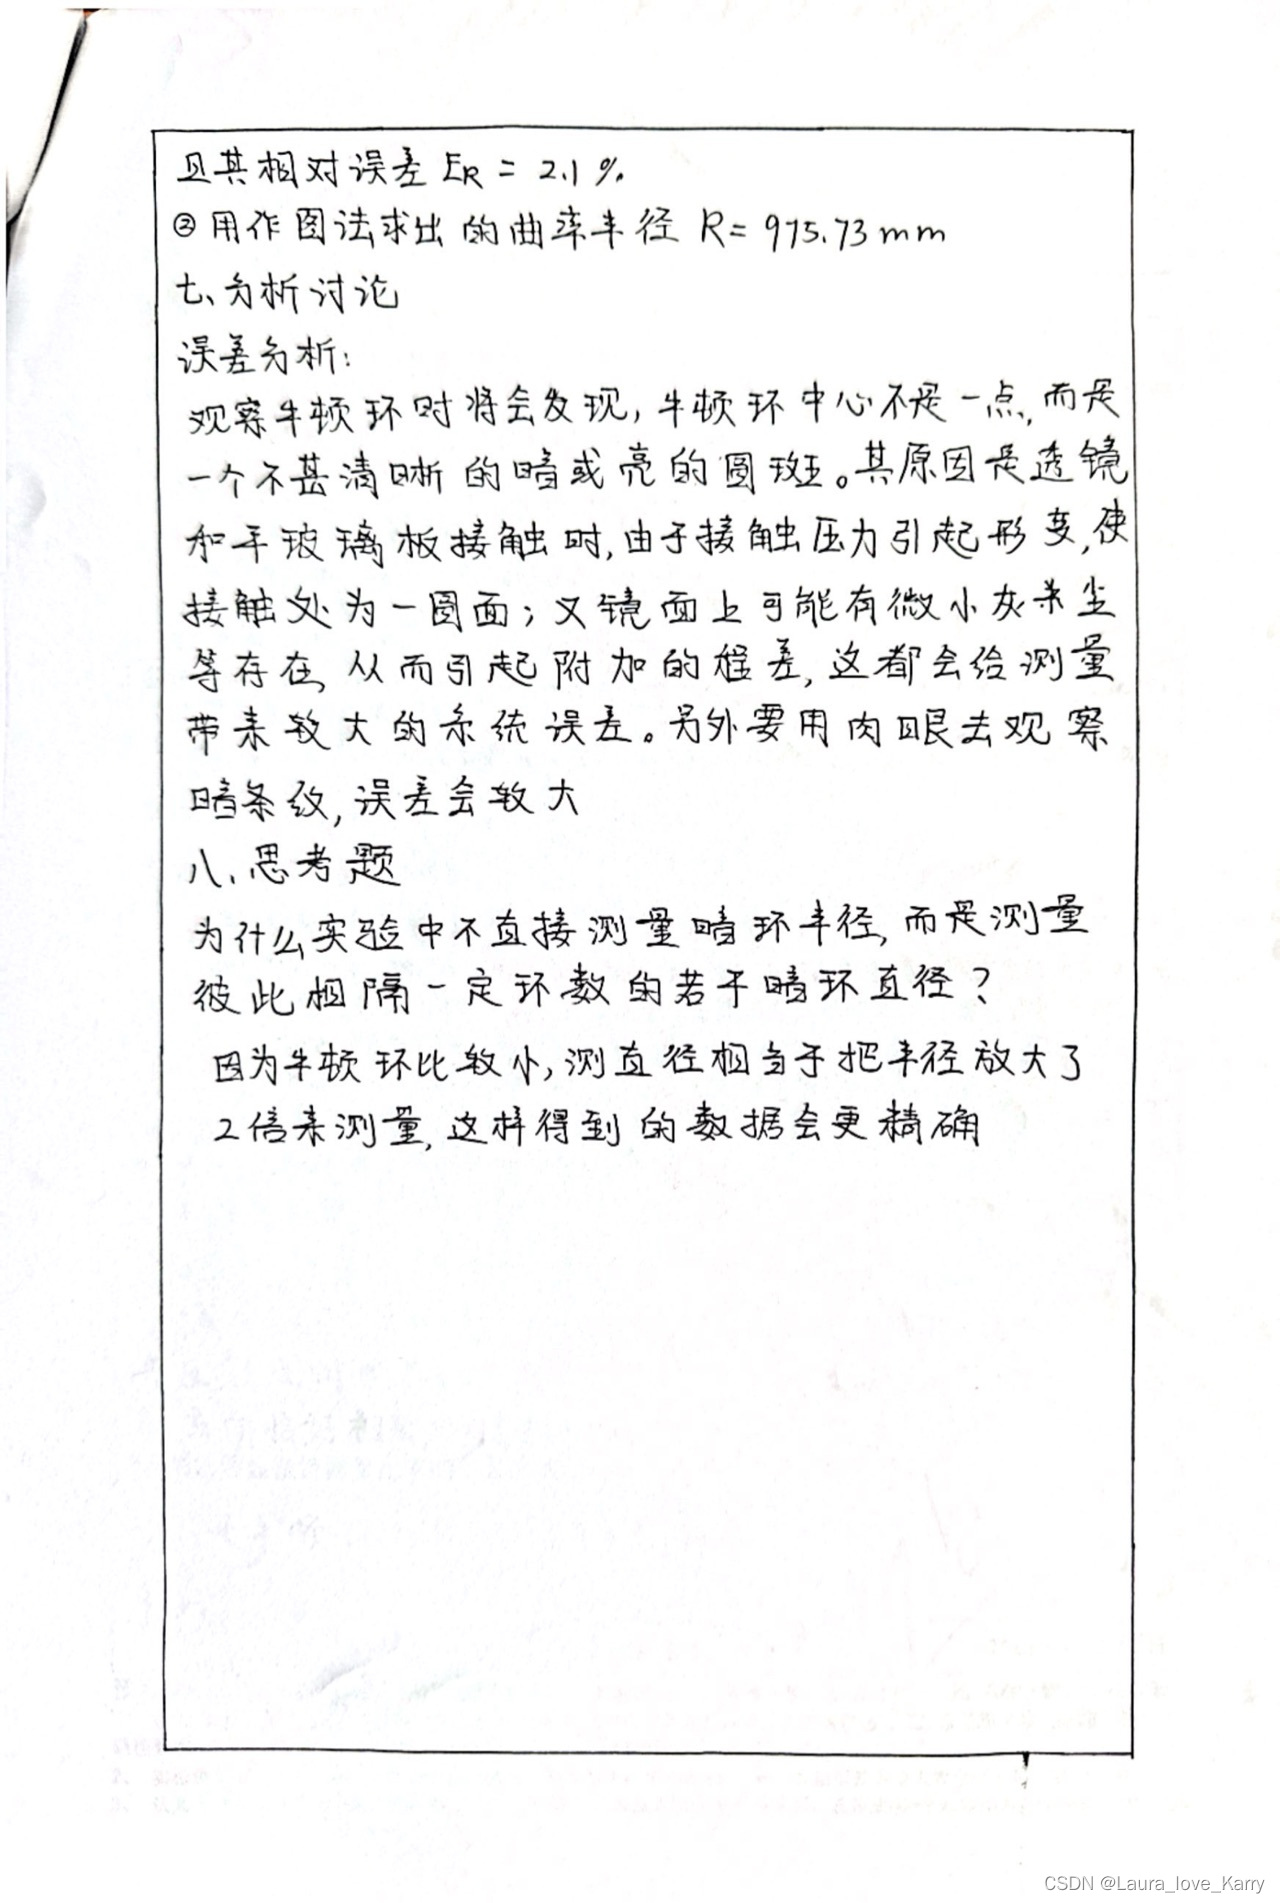 且其相对误差 ER = 2.1 %.
③用作图法求出的曲率半径 R= 975.73mm
七、分析讨论
误差分析:
观察牛顿环时将会发现,牛顿环中心不是一点,而是
一个不甚清晰的暗或亮的圆斑。其原因是透镜
和平玻璃板接触时,由于接触压力引起形变,使
接触处为一圆面;又镜面上可能有微小灰尘
等存在,从而引起附加的程差,这都会给测量
带来较大的系统误差。另外要用肉眼去观察
暗条纹,误差会较大
八、思考题
为什么实验中不直接测量暗环半径,而是测量
彼此相隔一定环数的若干暗环直径?
因为牛顿环比较小,测直径相当于把半径放大了
2倍来测量,这样得到的数据会更精确
CSDN @Laura_love_Karry